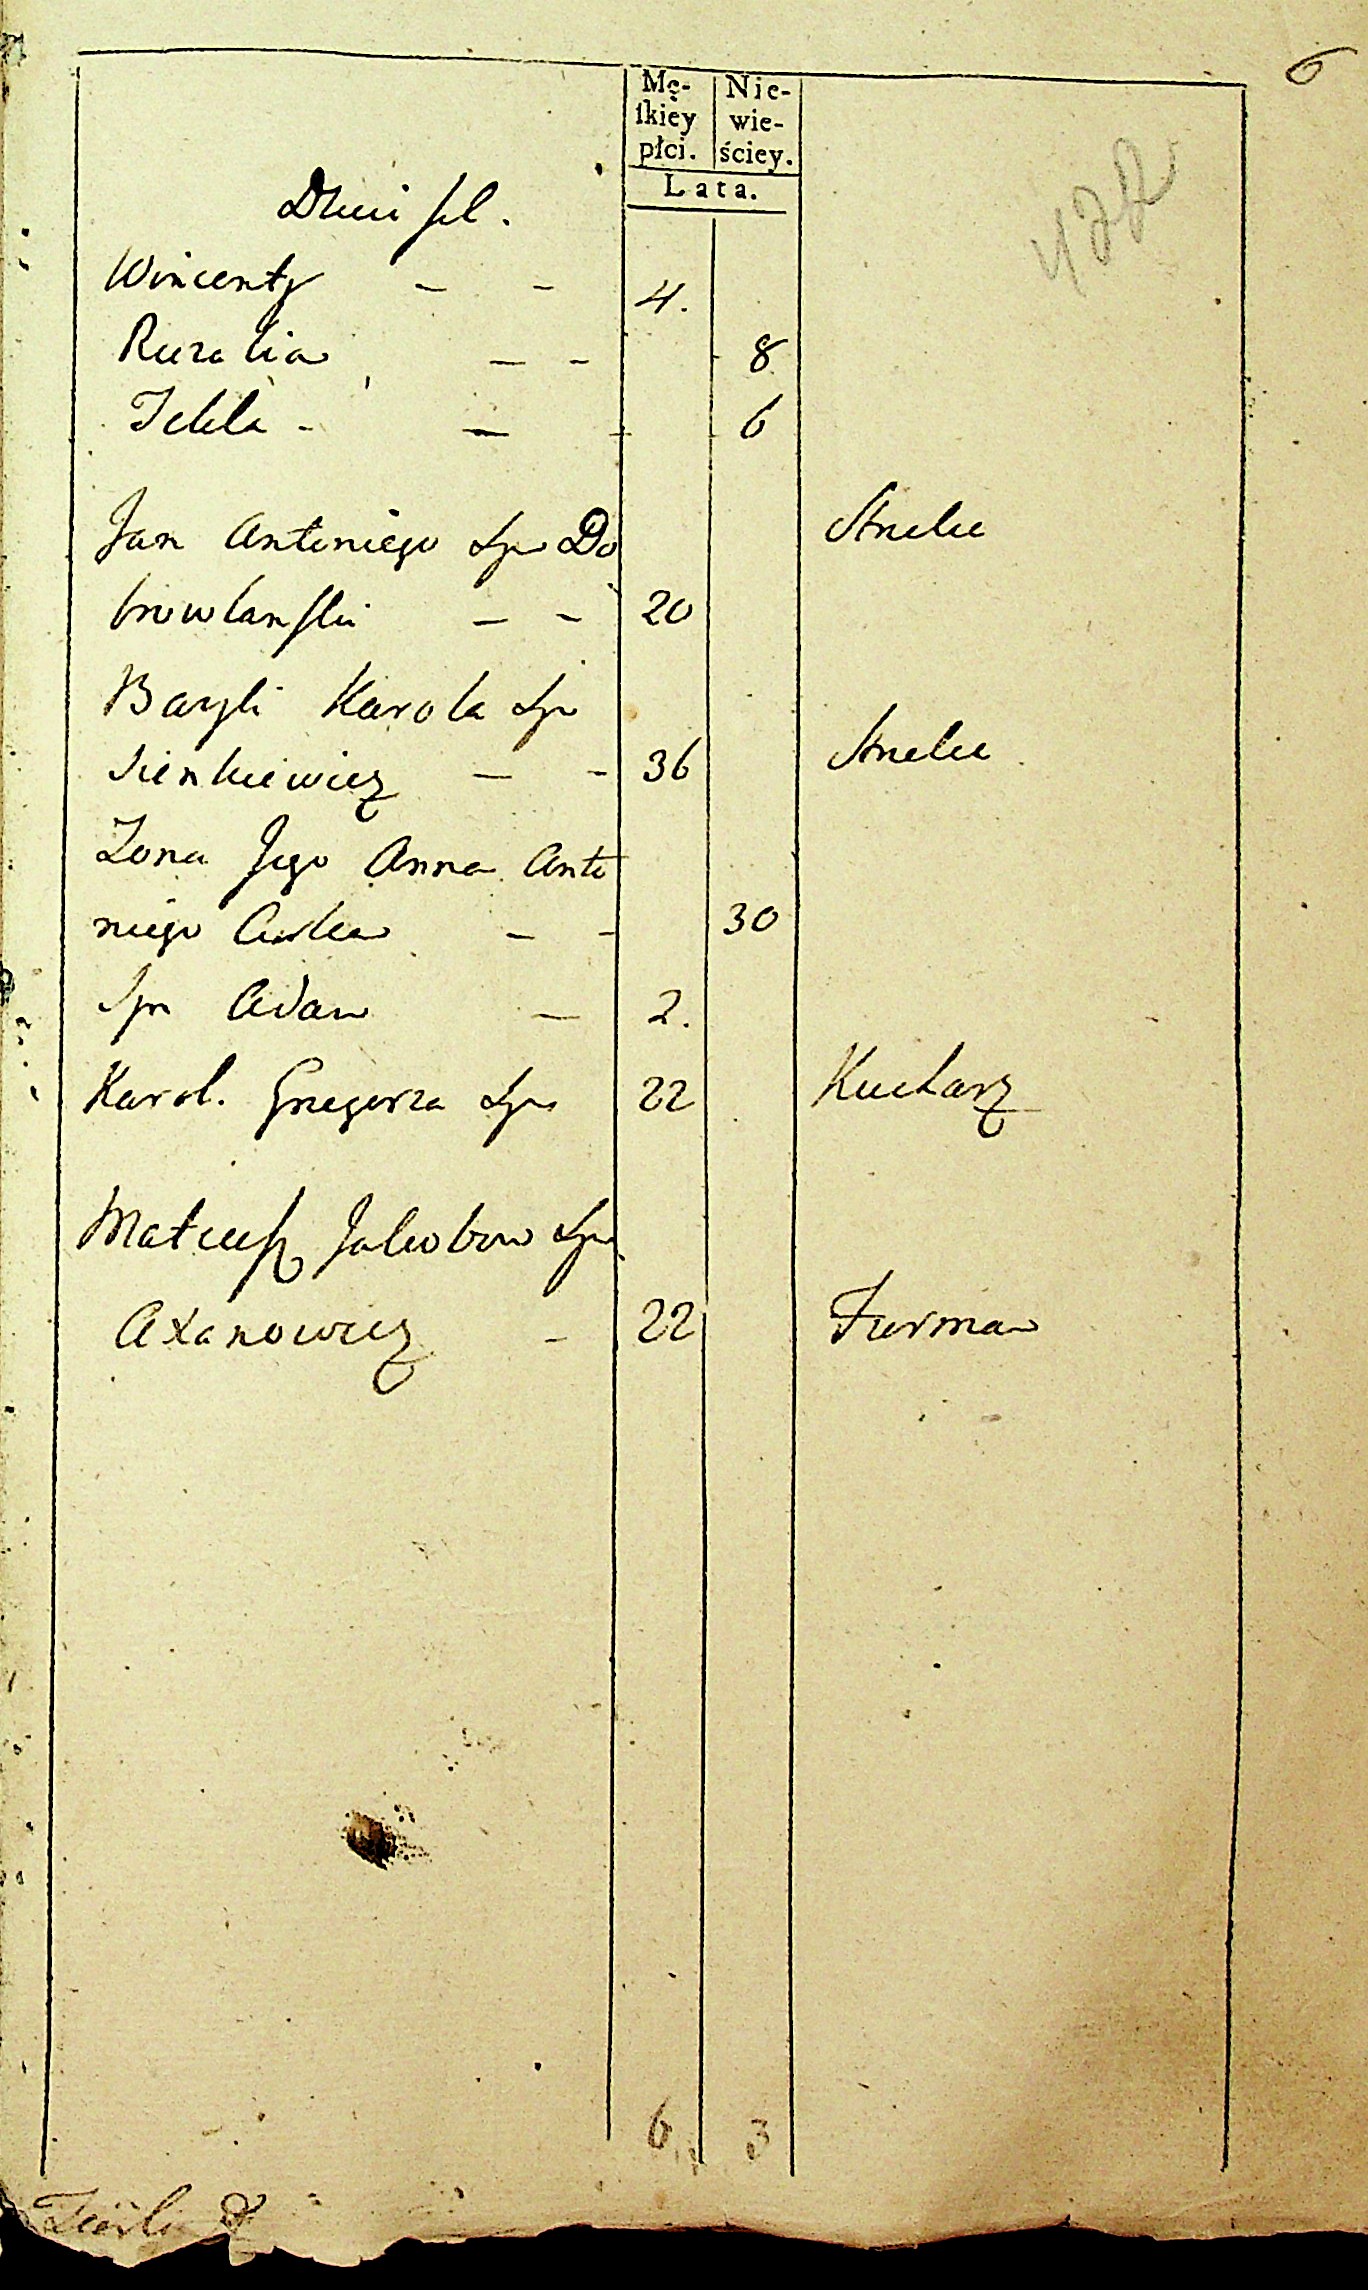 6
Mę- Nie-
ſkiey wie-
płci. ściey.
Lata.
Dzieci
Wincenty - - 4.
Ruzalia - - 8
Tekla - - 6
Jan Antoniego Syn Do Strzelec
browlanſki - - 20
Bazyli Karola Syn
Sienkiewicz - - 36 Strzelec
Zona Jego Anna Anto
niego - - 30
Syn Adam - 2.
Karol. Grzegorza Syn 22 Kucharz
Mateuſz Jakubow Syn
Axanowicz - 22 Furman
6 3